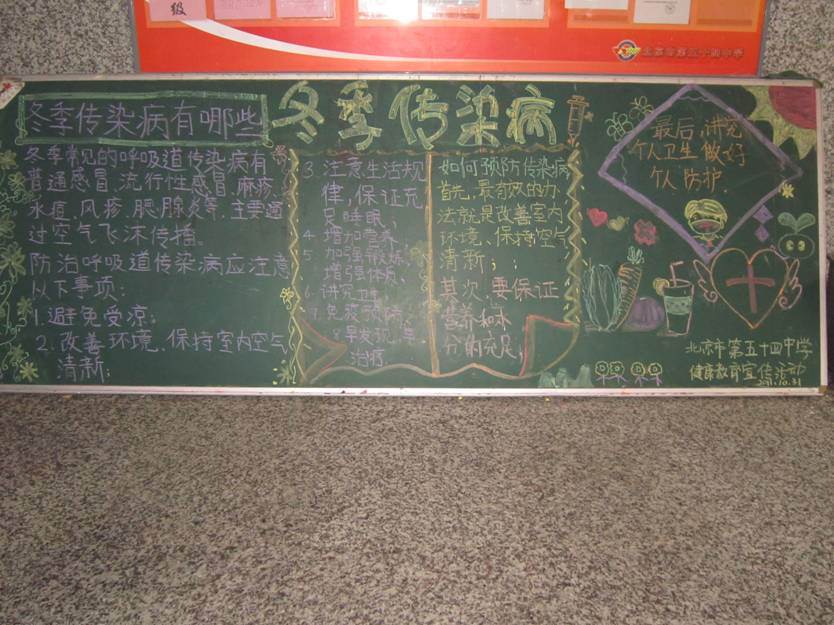 级
北京市第五十四中学
冬季传染病有哪些
冬季传染病
冬季常见的呼吸道传染病有
普通感冒、流行性感冒、麻疹、
水痘、风疹、腮腺炎等,主要通
过空气飞沫传播。
防治呼吸道传染病应注意
以下事项:
1.避免受凉;
2.改善环境、保持室内空气
清新;
3 注意生活规
律,保证充
足睡眠、
4 增加营养,
5 加强锻炼,
增强体质、
6 讲究卫生
7 免疫预防
早发现,早
治疗
如何预防传染病
首先,最有效的办
法就是改善室内
环境、保持空气
清新;
其次,要保证
营养和水
分的充足;
最后,讲究
个人卫生做好
个人防护.
北京市第五十四中学
健康教育宣传活动
2011.10.31